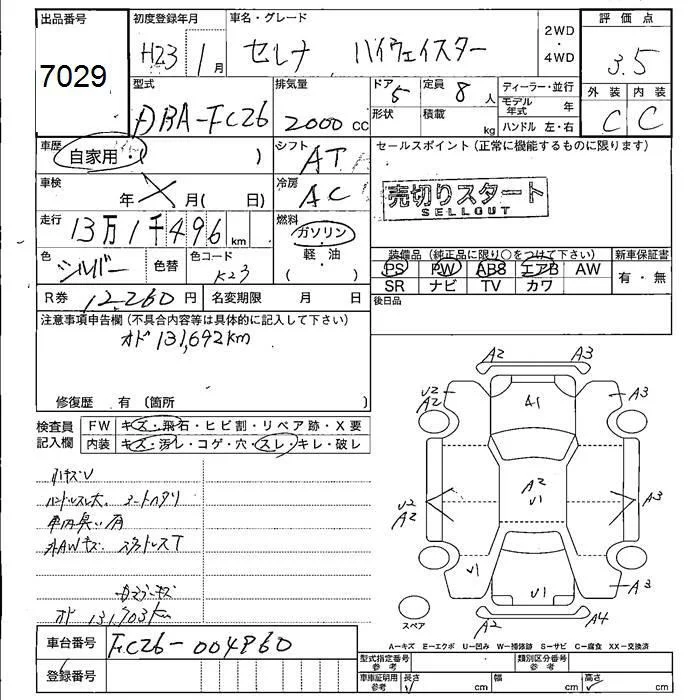 出品番号
7029
初度登録年月
H23 1月
車名・グレード
セレナ ハイウェイスター
2WD
・
4WD
評価点
3.5
外装 内装
C C
型式
DBA-FC26
排気量
2000 cc
ドア 5
定員 8 人
形状
積載 kg
ディーラー・並行
モデル年式 年
ハンドル 左・右
車歴
自家用・( )
シフト
AT
車検
年 月( 日)
冷房
AC
走行
13万1千496km
燃料
ガソリン・
軽・油
( )
色
シルバー
色替
色コード
K23
R券 12260円
名変期限 月 日
セールスポイント(正常に機能するものに限ります)
売切りスタート
SELLOUT
装備品(純正品に限り○をつけて下さい)
PS PW ABS エアB AW
SR ナビ TV カワ
新車保証書
有・無
後日品
注意事項申告欄(不具合内容等は具体的に記入して下さい)
オド 131,692km
修復歴 有(箇所 )
検査員
記入欄
FW キズ・飛石・ヒビ割・リペア跡・X要
内装 キズ・汚レ・コゲ・穴・スレ・キレ・破レ
ハンドルスレ大. シートヘタリ
車内臭い有
外AWキズ. スタッドレスT
オド 131,703km
車台番号 FC26-004960
登録番号
A2 A3
U2
A2
A1
A3
U2
A2
A2
U1
A3
U1
U1
A3
A2 A4
スペア
A-キズ E-エクボ U-凹み W-補修跡 S-サビ C-腐食 XX-交換済
型式指定番号
参考
類別区分番号
参考
車庫証明用
参考
長さ cm 幅 cm 高さ cm